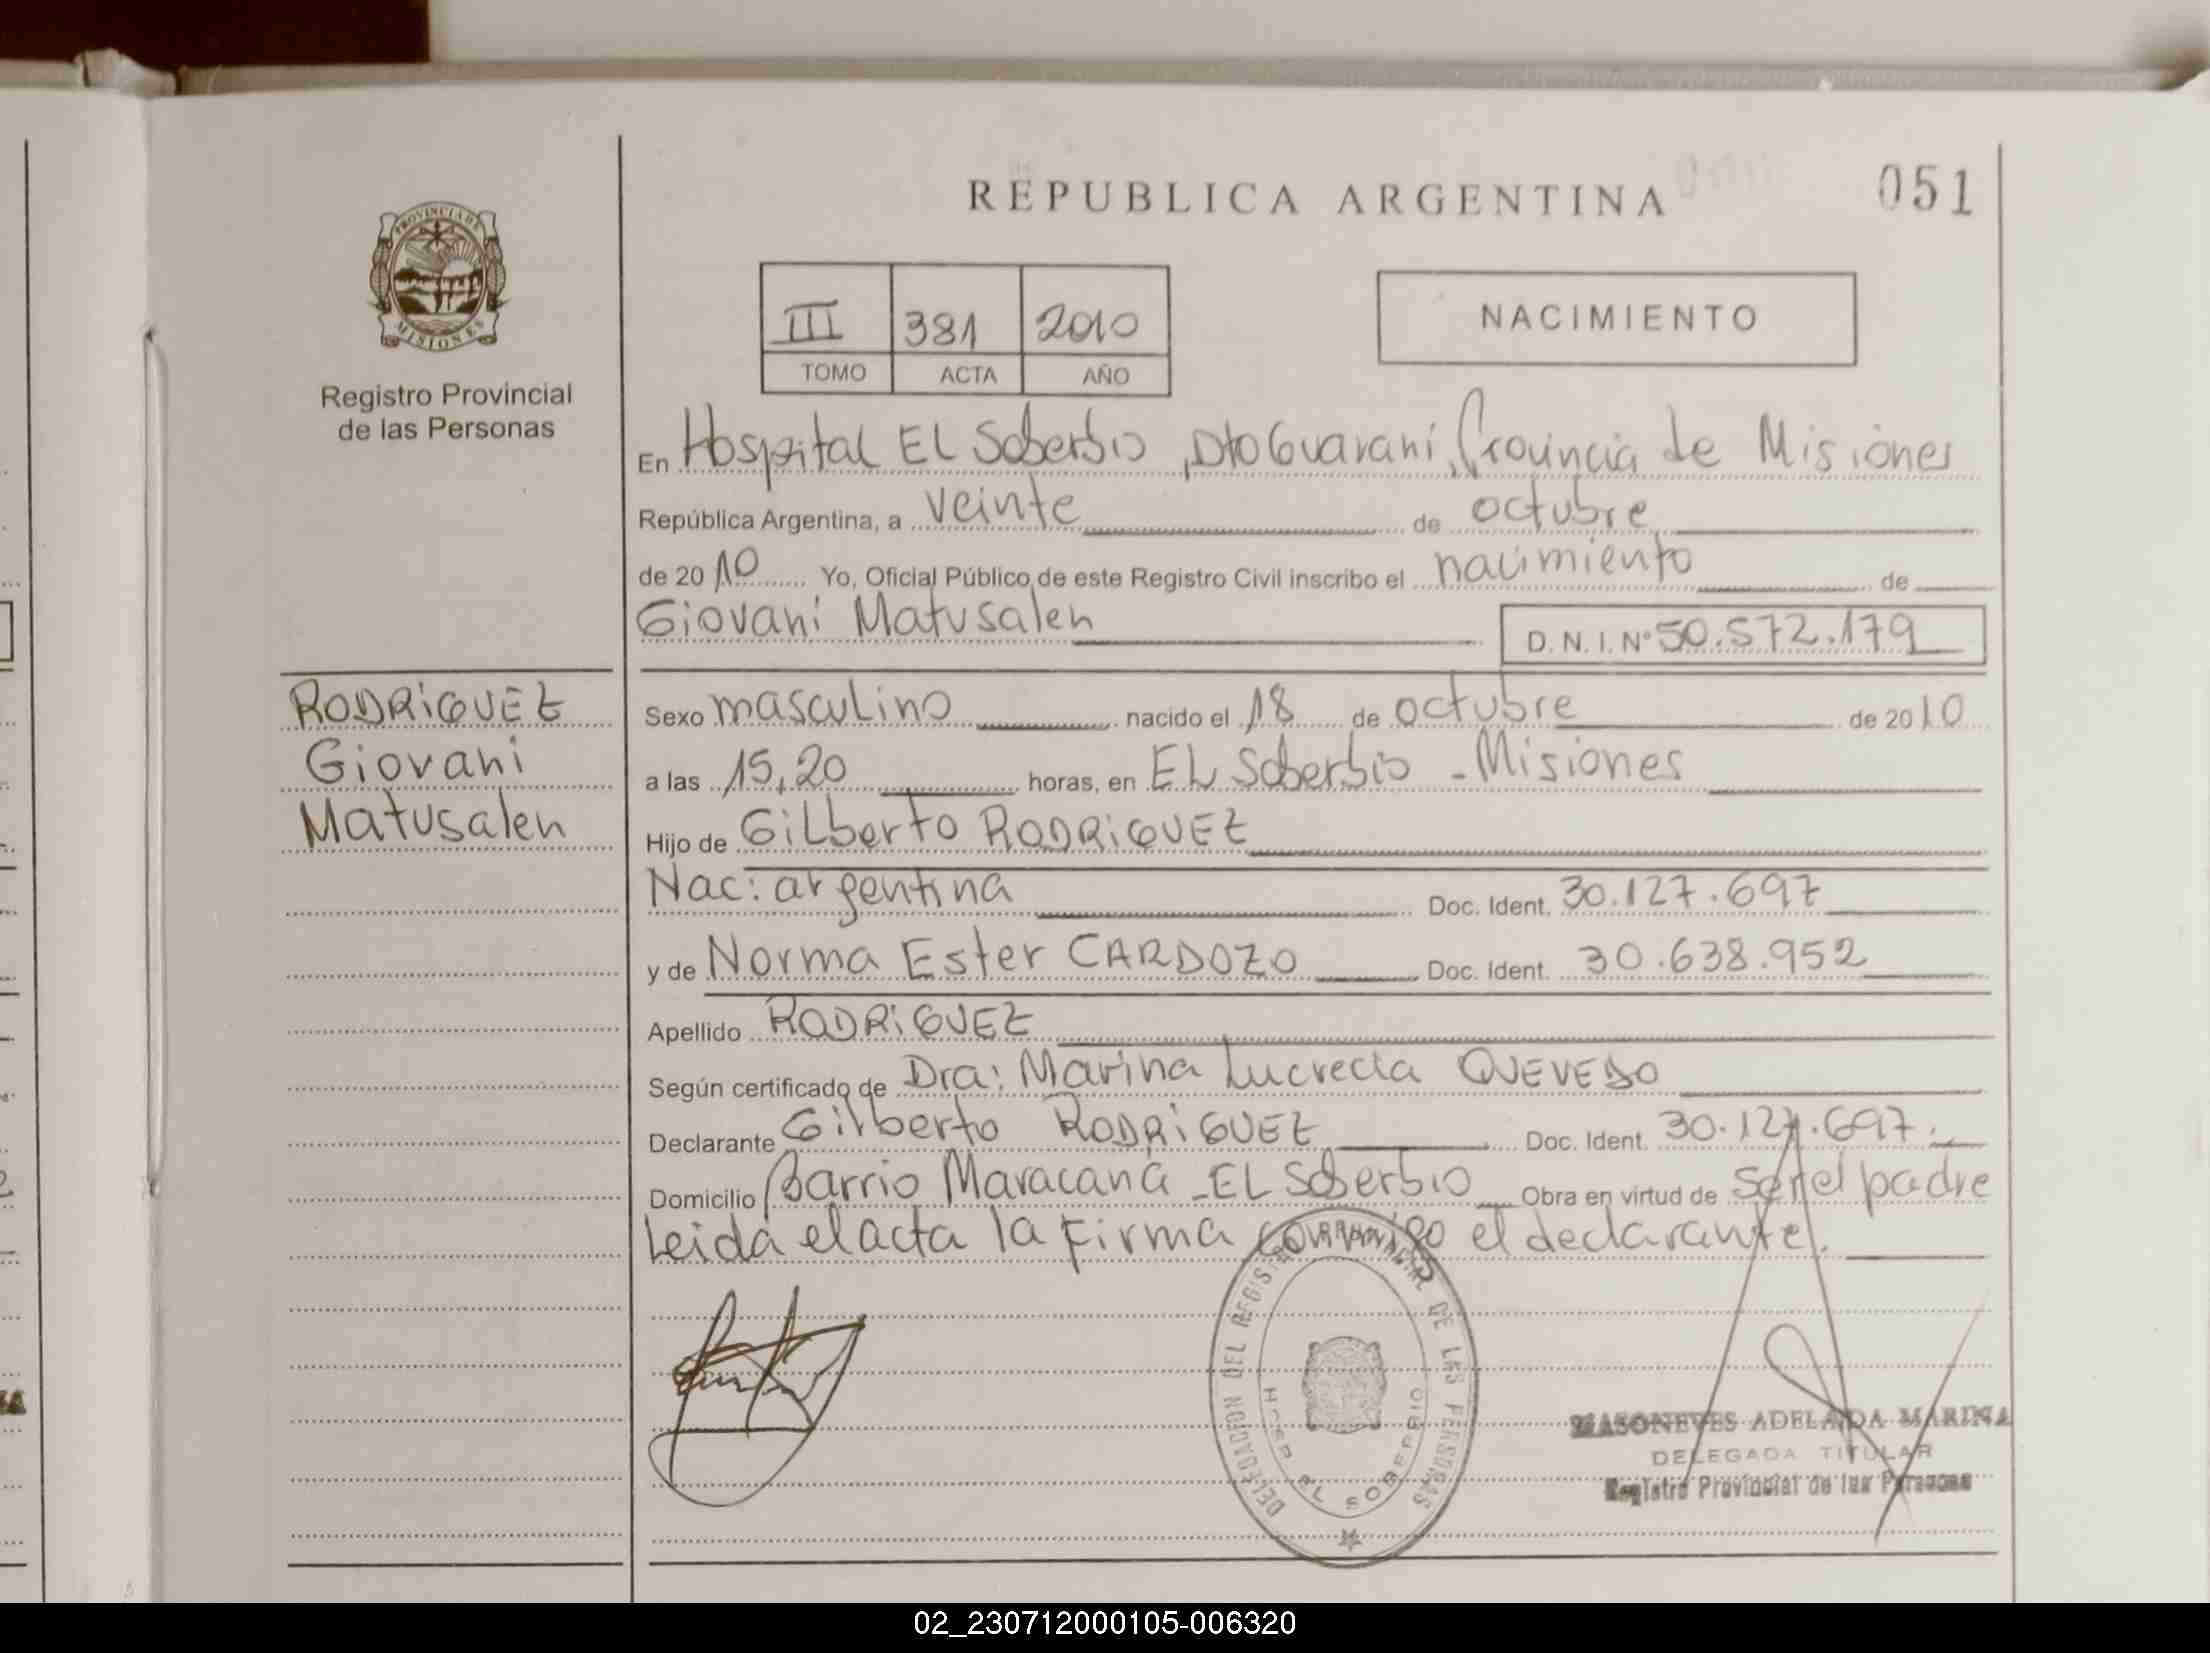 REPUBLICA ARGENTINA
051
PROVINCIA DE
MISIONES
Registro Provincial
de las Personas
III 381 2010
TOMO ACTA AÑO
NACIMIENTO
En Hospital EL Soberbio, Dto Guaraní, Provincia de Misiones
República Argentina, a veinte de octubre
de 2010 Yo, Oficial Público de este Registro Civil inscribo el nacimiento de
Giovani Matusalen
D.N.I. Nº 50.572.179
RODRIGUEZ
Giovani
Matusalen
Sexo masculino nacido el 18 de octubre de 2010
a las 15,20 horas, en EL Soberbio - Misiones
Hijo de Gilberto RODRIGUEZ
Nac: argentina Doc. Ident. 30.127.697
y de Norma Ester CARDOZO Doc. Ident. 30.638.952
Apellido RODRIGUEZ
Según certificado de Dra: Marina Lucrecia QUEVEDO
Declarante Gilberto RODRIGUEZ Doc. Ident. 30.127.697.
Domicilio Barrio Maracaná - EL Soberbio Obra en virtud de ser el padre
Leída el acta la firma conmigo el declarante.
DELEGACION DEL REGISTRO PROVINCIAL DE LAS PERSONAS
HOSP. EL SOBERBIO
ADELAIDA MARINA
DELEGADA TITULAR
Registro Provincial de las Personas
02_230712000105-006320